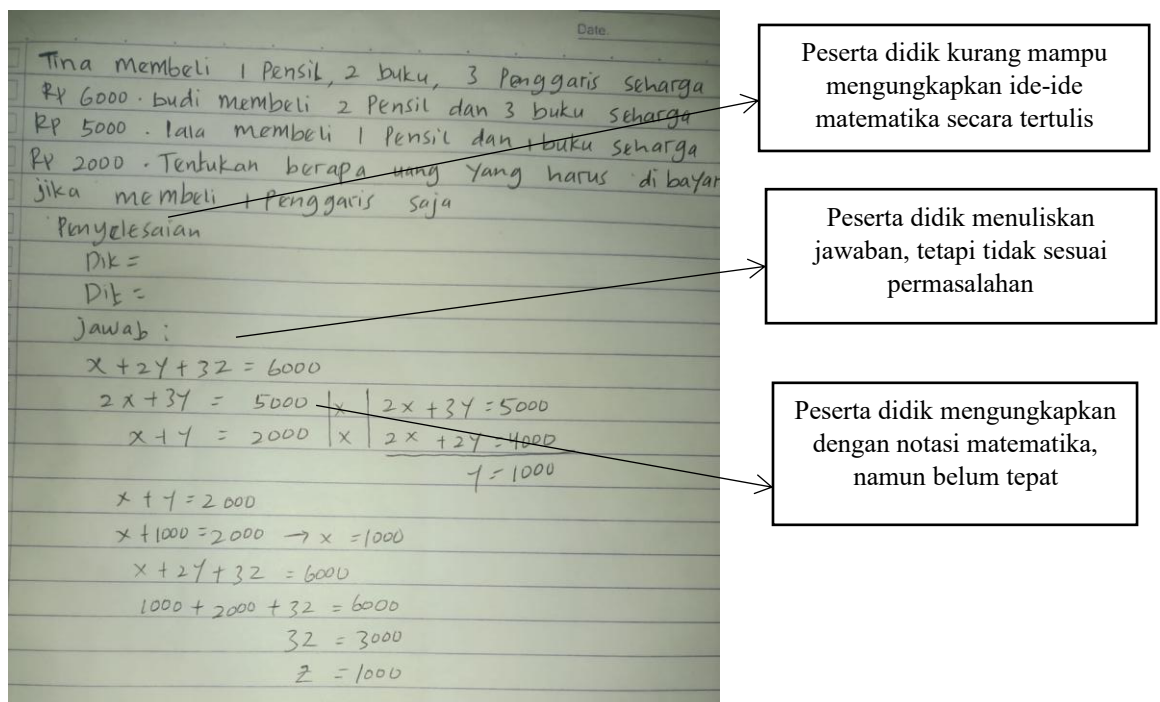 Date.
Tina membeli 1 Pensil, 2 buku, 3 Penggaris seharga
Rp 6000. budi membeli 2 Pensil dan 3 buku seharga
Rp 5000. lala membeli 1 Pensil dan 1 buku seharga
Rp 2000. Tentukan berapa uang yang harus dibayar
jika membeli 1 Penggaris saja
Penyelesaian
Dik =
Dit =
Jawab :
x + 2y + 3z = 6000
2x + 3y = 5000 | x | 2x + 3y = 5000
x + y = 2000 | x | 2x + 2y = 4000
y = 1000
x + y = 2000
x + 1000 = 2000 → x = 1000
x + 2y + 3z = 6000
1000 + 2000 + 3z = 6000
3z = 3000
z = 1000
Peserta didik kurang mampu
mengungkapkan ide-ide
matematika secara tertulis
Peserta didik menuliskan
jawaban, tetapi tidak sesuai
permasalahan
Peserta didik mengungkapkan
dengan notasi matematika,
namun belum tepat